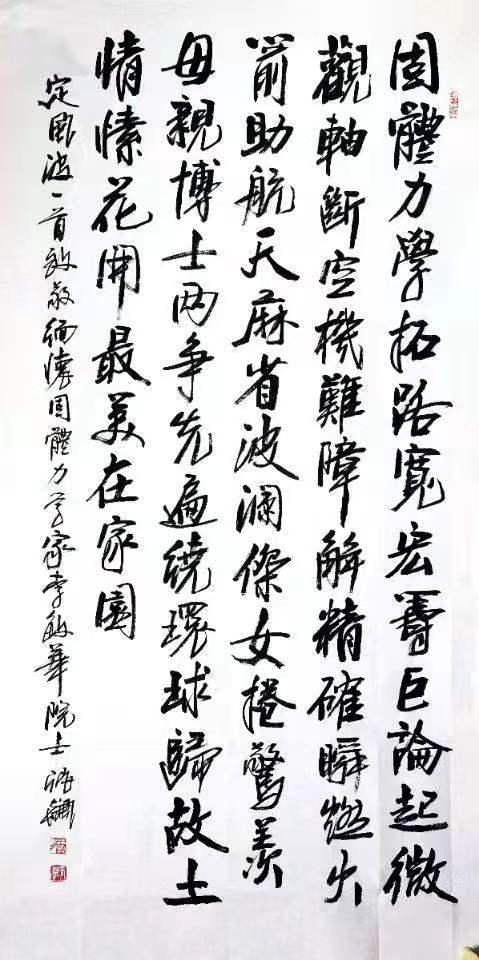 固體力學拓路寬宏著巨論起微
觀軸斷空機難障解精確瞬燃火
箭助航天麻省波瀾傑女捲驚羨
母親博士两爭先遍繞環球歸故土
情愫花開最美在家園
定風波一首致敬緬懷固體力学家李敏華院士